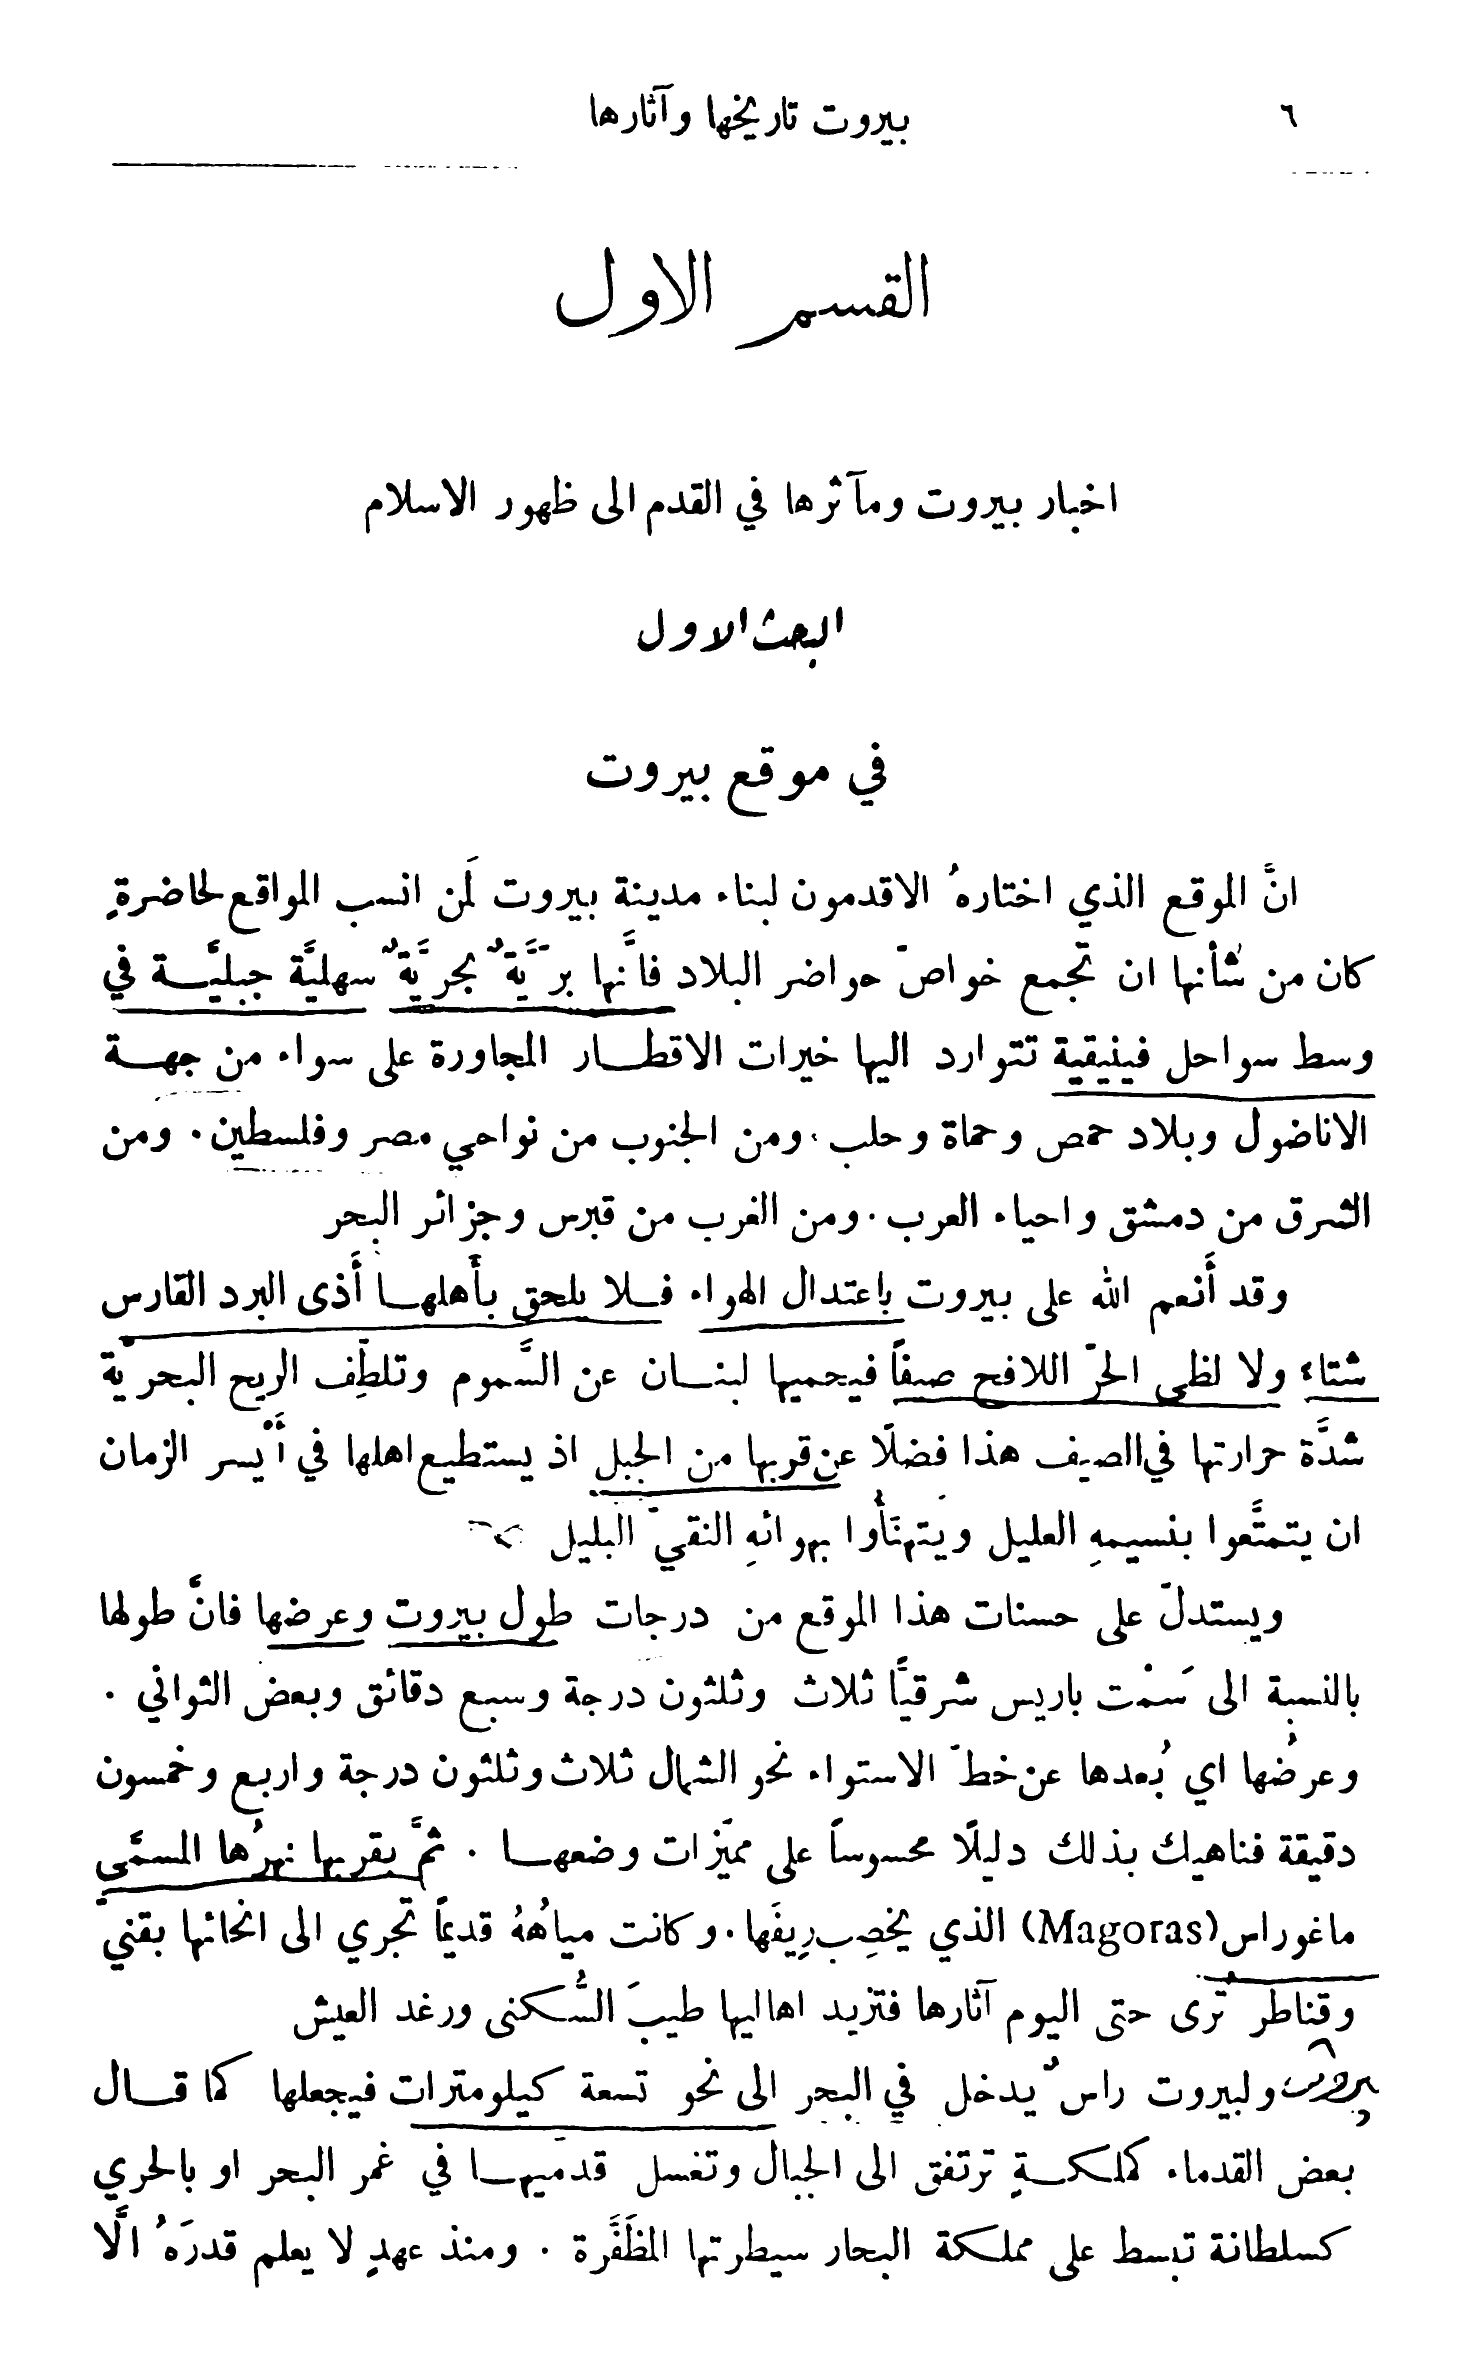 ٦
بيروت تاريخها وآثارها
القسم الاول
اخبار بيروت ومآثرها في القدم الى ظهور الاسلام
البحث الاول
في موقع بيروت
انَّ الموقع الذي اختارهُ الاقدمون لبناء مدينة بيروت لَمن انسب المواقع لحاضرةٍ
كان من شأنها ان تجمع خواصّ حواضر البلاد فانَّها برّيَّةٌ بحريَّةٌ سهليَّة جبليَّـة في
وسط سواحل فينيقية تتوارد اليها خيرات الاقطـار المجاورة على سواء من جهـة
الاناضول وبلاد حمص وحماة وحلب. ومن الجنوب من نواحي مصر وفلسطين. ومن
الشرق من دمشق واحياء العرب. ومن الغرب من قبرس وجزائر البحر
وقد أَنعم الله على بيروت باعتدال الهواء فـلا يلحق بأَهلهـا أَذى البرد القارس
شتاء ولا لظى الحرّ اللافح صيفاً فيحميها لبنـان عن السَّموم وتلطِّف الريح البحريَّة
شدَّة حرارتها في الصيف هذا فضلًا عن قربها من الجبل اذ يستطيع اهلها في أَيسر الزمان
ان يتمتَّعوا بنسيمهِ العليل ويَتهنَّأُوا بهوائهِ النقيّ البليل
ويستدلّ على حسنات هذا الموقع من درجات طول بيروت وعرضها فانَّ طولها
بالنسبة الى سَمْت باريس شرقيًّا ثلاث وثلثون درجة وسبع دقائق وبعض الثواني .
وعرضُها اي بُعدها عن خطّ الاستواء نحو الشمال ثلاث وثلثون درجة واربع وخمسون
دقيقة فناهيك بذلك دليلًا محسوساً على مميّزات وضعهـا . ثمَّ بقربها نهرُها المسمَّى
ماغوراس (Magoras) الذي يخصِب رِيفَها. وكانت مياهُهُ قديماً تجري الى انحائها بقني
وقناطر تُرى حتى اليوم آثارها فتزيد اهاليها طيبَ السُّكنى ورغد العيش
ولبيروت راسٌ يدخل في البحر الى نحو تسعة كيلومترات فيجعلها كما قـال
بعض القدماء كملكـةٍ ترتفق الى الجبال وتغسل قدمَيهـا في غمر البحر او بالحري
كسلطانة تبسط على مملكة البحار سيطرتها المظَفَّرة . ومنذ عهدٍ لا يعلم قدرَهُ الَّا